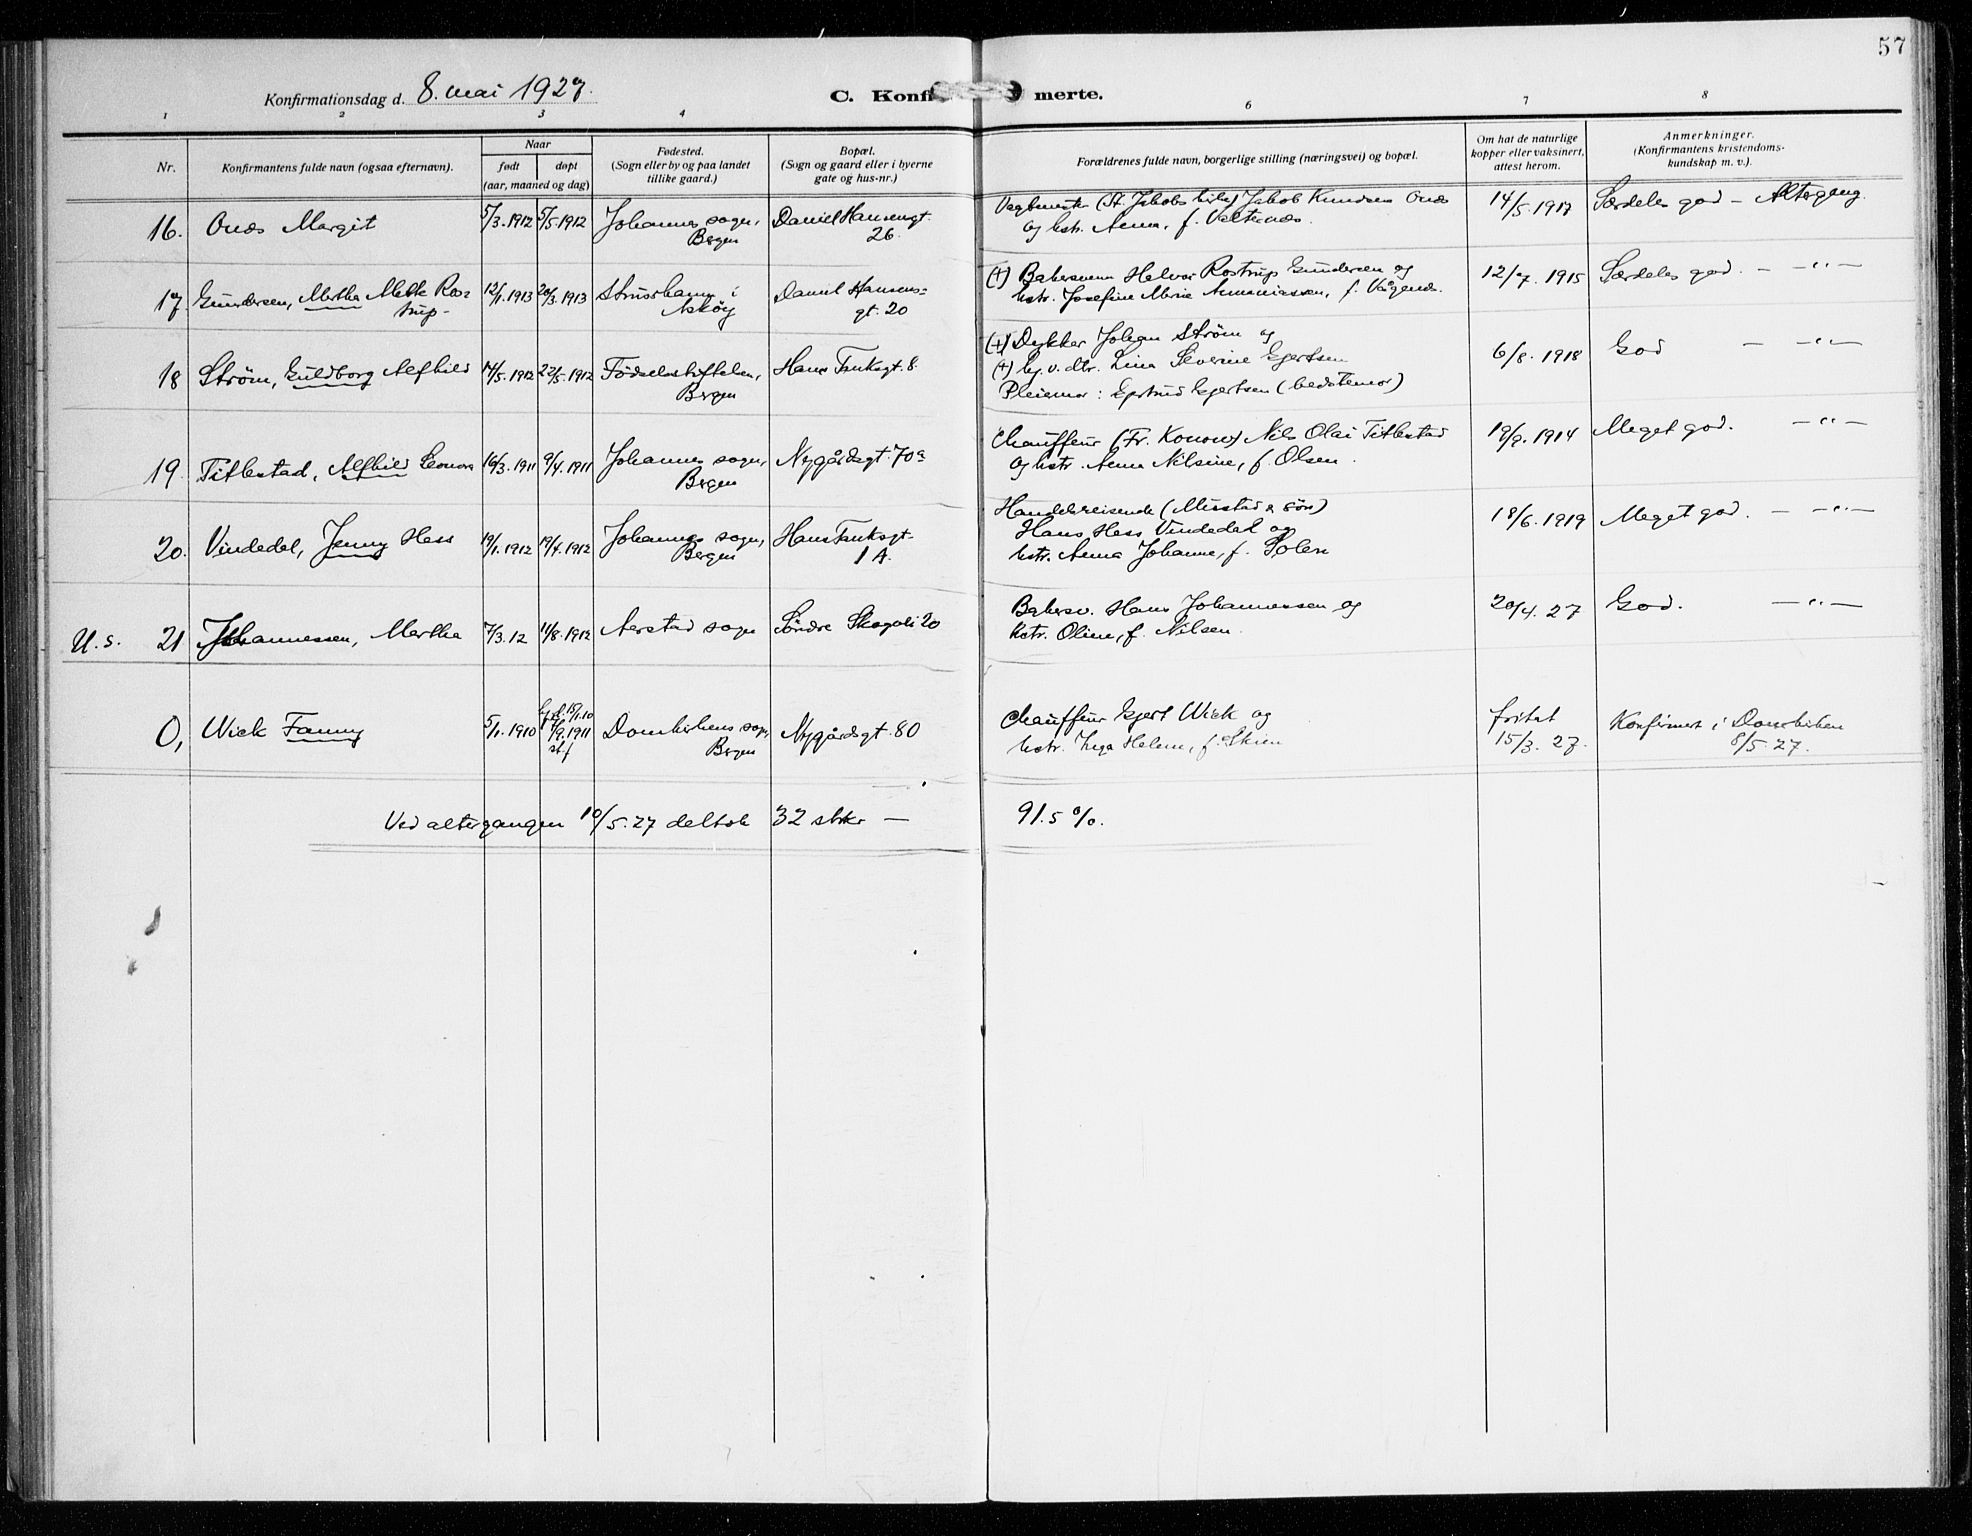 57
Konfirmationsdag d. 8. mai 1927.
C. Konfi merte.
1 2 3 4 6 7 8
Nr.
Konfirmantens fulde navn (ogsaa efternavn).
Naar
født døpt
(aar, maaned og dag)
Fødested.
(Sogn eller by og paa landet
tillike gaard.)
Bopæl.
(Sogn og gaard eller i byerne
gate og hus-nr.)
Forældrenes fulde navn, borgerlige stilling (næringsvei) og bopæl.
Om hat de naturlige
kopper eller vaksinert,
attest herom.
Anmerkninger.
(Konfirmantens kristendoms-
kundskap m. v.).
16. Onæs Margit 5/3.1912 5/5.1912 Johannes sogn, Bergen Daniel Hansensgt. 26.
(St. Jakobs kirke) Jakob Knudsen Onæs
og hstr. Anna, f. Valternæs. 14/5.1917 Særdeles god – Altergang.
17. Gundersen, Martha Mette Ros=
trup- 12/1.1913 20/3.1913 Strusshamn i Askøy Daniel Hansens=
gt. 20
(†) Bakersvenn Halvor Rostrup Gundersen og
hstr. Josefine Marie Ammniassen, f. Vågenes. 12/7. 1915 Særdeles god. — —"—
18 Strøm, Guldborg Alfhild 14/5.1912 22/5.1912 Fødselsstiftelsen, Bergen Hans Tanksgt. 8.
(†) Dykker Johan Strøm og
(†) Lina Severine Gjertsen
Pleiemor: Gjertrud Gjertsen (bedstemor) 6/8. 1918 God — —"—
19. Titlestad, Alfhild Leonora 16/3.1911 9/4.1911 Johannes sogn, Bergen Nygårdsgt. 70a
Chauffeur (Fr. Konow) Nils Olai Titlestad
og hstr. Anna Nilsine, f. Olsen. 19/9. 1914 Meget god. —"—
20. Vindedal, Jenny Hess 19/1.1912 19/4.1912 Johannes sogn, Bergen Hans Tanksgt. 1 A.
Handelsreisende (Misstad & søn)
Hans Hess Vindedal og
hstr. Anna Johanne, f. Solem 18/6. 1919 Meget god. — —"—
U. s. 21. Johannessen, Martha 7/3.12 11/8.1912 Aarstad sogn Søndre Skogvei 20
Bakersv. Hans Johannessen og
hstr. Oline, f. Nilsen. 20/4. 27 God. —"—
0, Wick Fanny 5/1.1910 hj.d. 15/1.10
1/9.1911
st/ Domkirkens sogn, Bergen Nygårdsgt. 80
Chauffeur Gjert Wick og
hstr. Inga Helene, f. Skien fritat
15/3. 27. Konfirmert i Domkirken
8/5. 27.
Ved altergangen 10/5.27 deltok 32 stkr — 91.5 %.